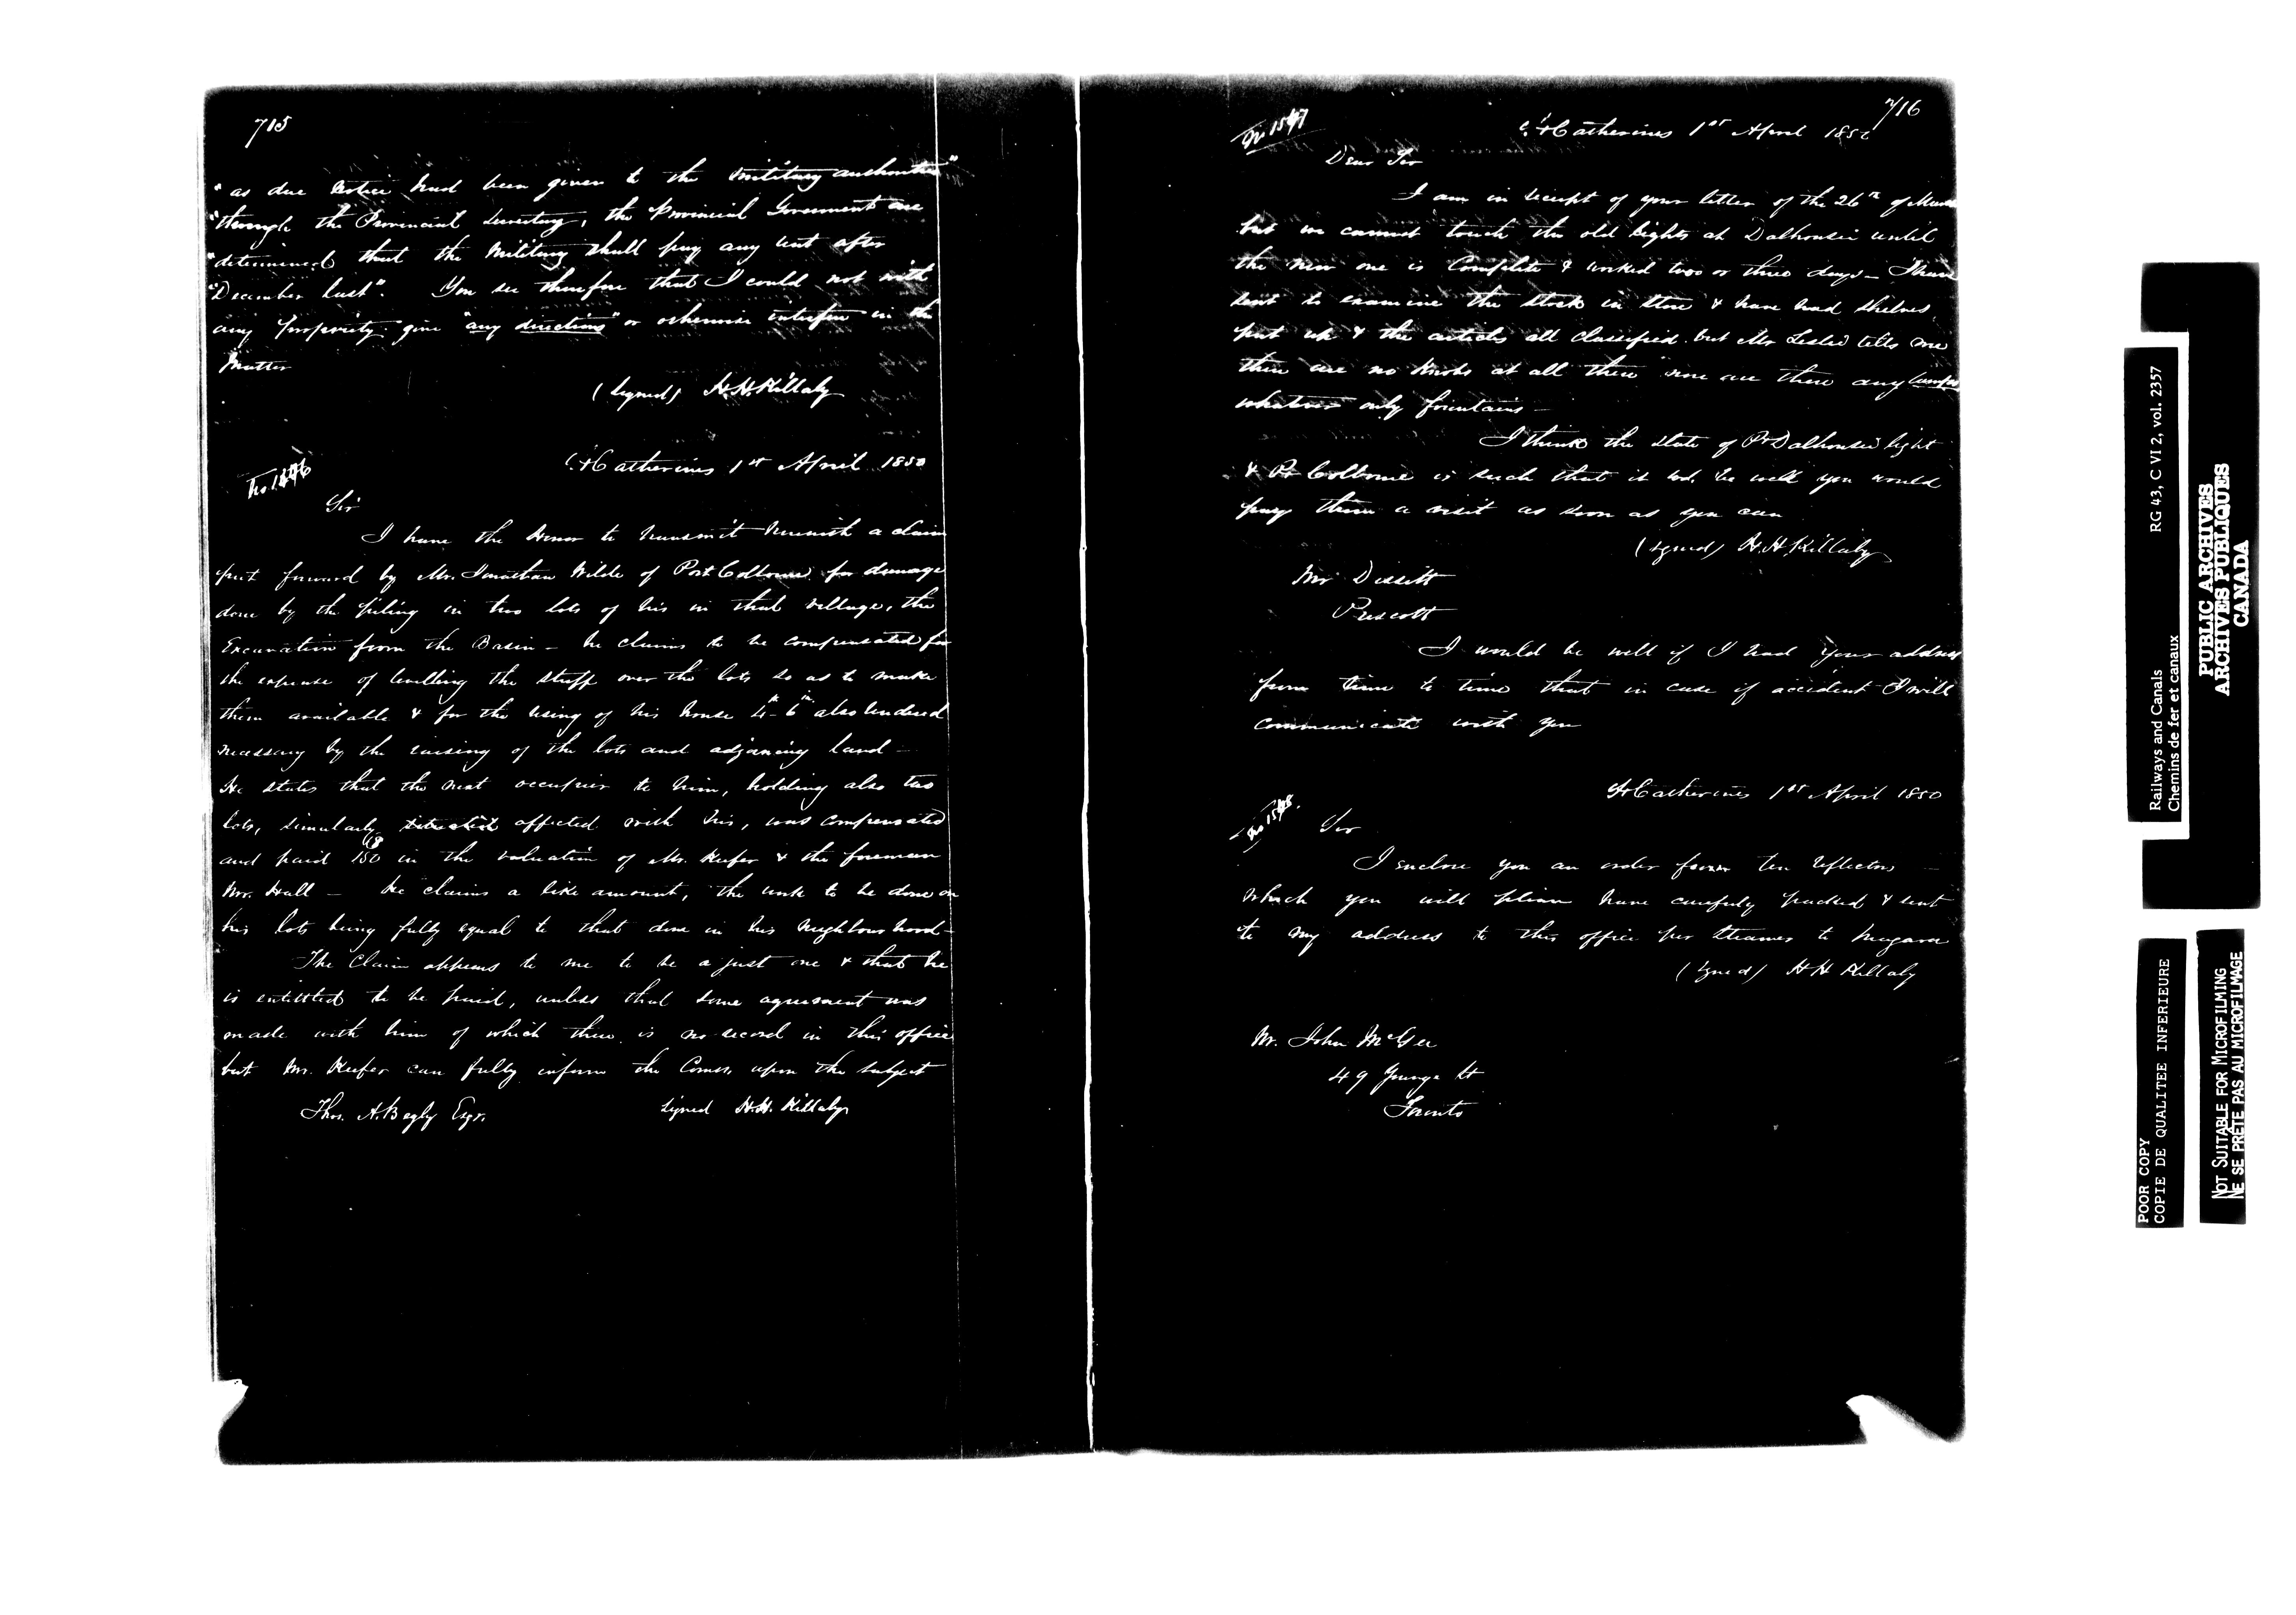 715
"as due notice had been given to the military authorities"
"through the Provincial Secretary, the Provincial Government are
"determined that the Military shall pay any rent after
"December last". You see therefore that I could not with
any propriety give "any directions" or otherwise interfere in the
Matter
(signed) H.H. Killaly
St Catherines 1st April 1850
Sir
I have the Honor to transmit herewith a claim
put forward by Mr. Jonathan Wilde of Port Colborne for damage
done by the piling in two lots of his in that village, the
Excavation from the Basin - he claims to be compensated for
the expense of levelling the stuff over the lots so as to make
them available & for the rising of his house 4 ft 6 in also rendered
necessary by the raising of the lots and adjoining land -
He states that the next occupier to him, holding also two
lots, similarly affected with his, was compensated
and paid 150 in the valuation of Mr. Keefer & the foreman
Mr. Hall - he claims a like amount, the work to be done on
his lots being fully equal to that done in his neighbourhood -
The Claim appears to me to be a just one & that he
is entittled to be paid, unless that some agreement was
made with him of which there is no record in this office
but Mr. Keefer can fully inform the Comrs. upon the subject
Thos. A. Begly Esqr. signed H.H. Killaly
716
No 1547
St Catherines 1st April 1850
Dear Sir
I am in receipt of your letter of the 26th of March
but we cannot touch the old lights at Dalhousie until
the new one is Complete & worked two or three days - I have
sent to examine the stock in store & have had shelves
put up & the articles all classified. but Mr Leslie tells me
there are no at all there nor are there any lamps
whatever only fountains -
I think the state of Pt Dalhousie light
& Pt Colborne is such that it wd. be well you would
pay them a visit as soon as you can
(signed) H.H Killaly
Mr Dissitt
Prescott
I would be well if I had your address
from time to time that in case of accident I will
communicate with you
St Catherines 1st April 1850
No 1548.
Sir
I enclose you an order for ten reflectors -
which you will please have carefuly packed & sent
to my address to this office per steamer to Niagara
(signed) H H Killaly
Mr. John McGee
49 Younge St
Toronto
RG 43, C VI 2, vol. 2357
Railways and Canals
Chemins de fer et canaux
PUBLIC ARCHIVES
ARCHIVES PUBLIQUES
CANADA
POOR COPY
COPIE DE QUALITEE INFERIEURE
NOT SUITABLE FOR MICROFILMING
NE SE PRÊTE PAS AU MICROFILMAGE